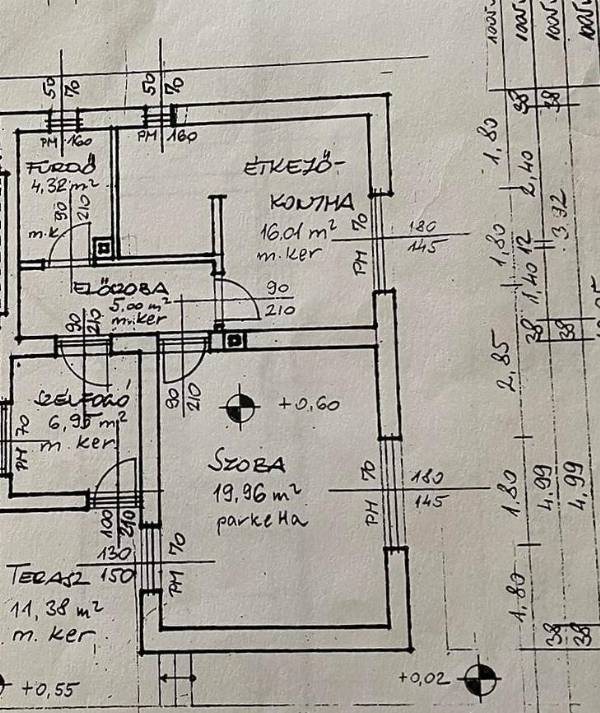 50
70
50
70
PM 160
PM 160
FÜRDŐ
4,32 m²
90
210
m.k
ÉTKEZŐ-
KONYHA
16,01 m²
m. ker
PM 70
180
145
ELŐSZOBA
5,00 m²
m. ker
90
210
90
210
90
210
SZÉLFOGÓ
6,95 m²
m. ker
PM 70
+0,60
SZOBA
19,96 m²
parketta
PM 70
180
145
100
210
130
150
PM 70
TERASZ
11,38 m²
m. ker
+0,55
+0,02
1,80
1,80
2,85
1,80
1,80
38
2,40
12
1,40
38
4,99
38
38
3,92
38
4,99
38